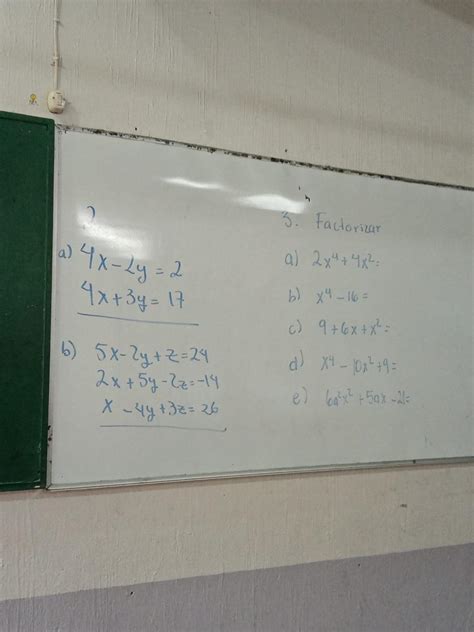 2
a) 4x-2y=2
4x+3y=17
b) 5x-2y+z=24
2x+5y-2z=-14
x-4y+3z=26
3. Factorizar
a) 2x⁴+4x²=
b) x⁴-16=
c) 9+6x+x²=
d) x⁴-10x²+9=
e) 6a²x²+5ax-21=